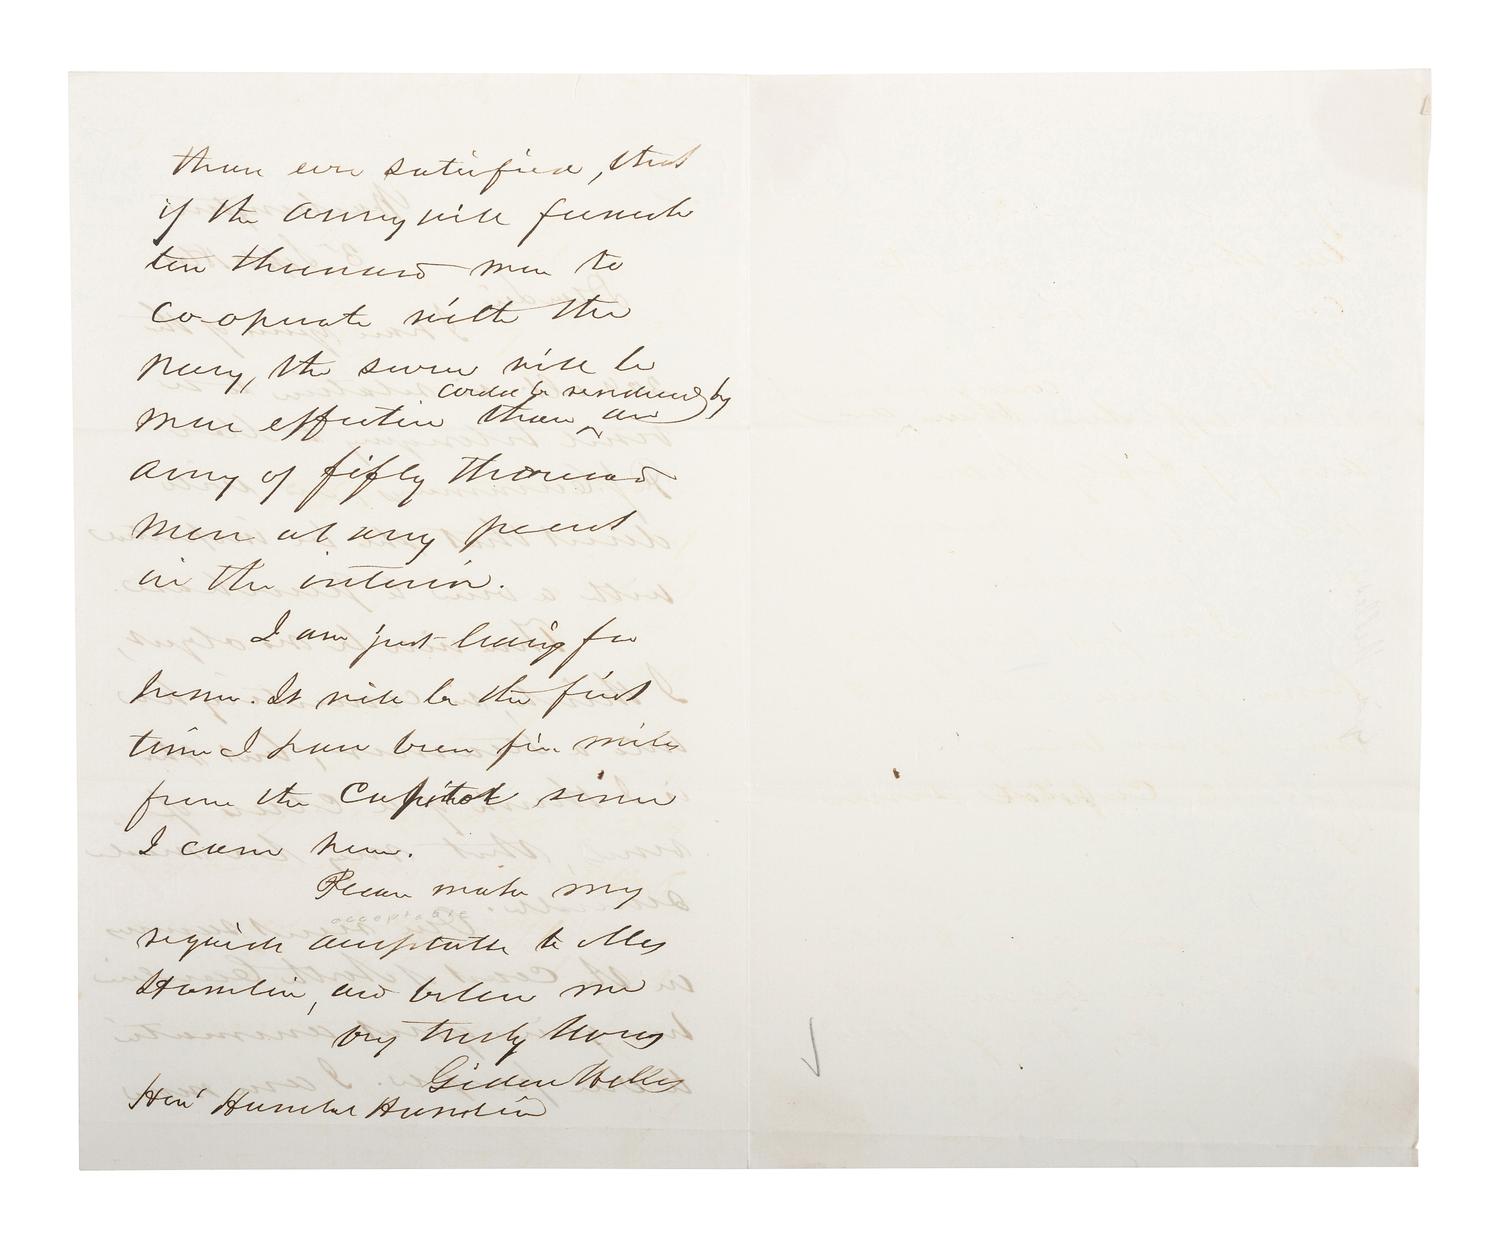 than ever satisfied, that
if the army will furnish
ten thousand men to
co-operate with the
navy, the service will be
could be rendered by
more effective than ^ an
army of fifty thousand
men at any point
in the interior.
I am just leaving for
home. It will be the first
time I have been five miles
from the Capitol since
I came here.
Please make my
acceptable
regards acceptable to Mrs
Hamlin, and believe me
very truly Yours
Gideon Welles
Hon' Hannibal Hamlin